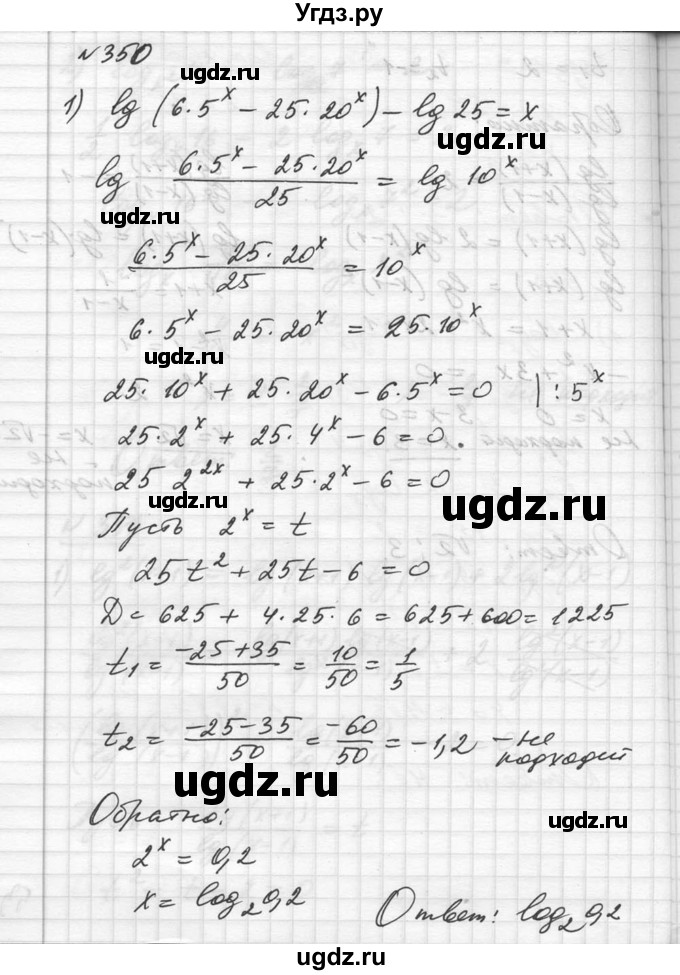 Угдз.ру
№350
1) lg (6·5^x − 25·20^x) − lg 25 = x
ugdz.ru ugdz.ru
lg (6·5^x − 25·20^x)/25 = lg 10^x
ugdz.ru ugdz.ru
(6·5^x − 25·20^x)/25 = 10^x
6·5^x − 25·20^x = 25·10^x
ugdz.ru
25·10^x + 25·20^x − 6·5^x = 0 | : 5^x
25·2^x + 25·4^x − 6 = 0.
25 2^2x + 25·2^x − 6 = 0
ugdz.ru ugdz.ru
Пусть 2^x = t
25t² + 25t − 6 = 0
D = 625 + 4·25·6 = 625+600 = 1225
t₁ = (−25+35)/50 = 10/50 = 1/5
ugdz.ru
t₂ = (−25−35)/50 = −60/50 = −1,2 − не подходит
ugdz.ru
Обратно:
ugdz.ru
2^x = 0,2
x = log₂0,2
Ответ: log₂0,2
ugdz.ru ugdz.ru
Угдз.ру